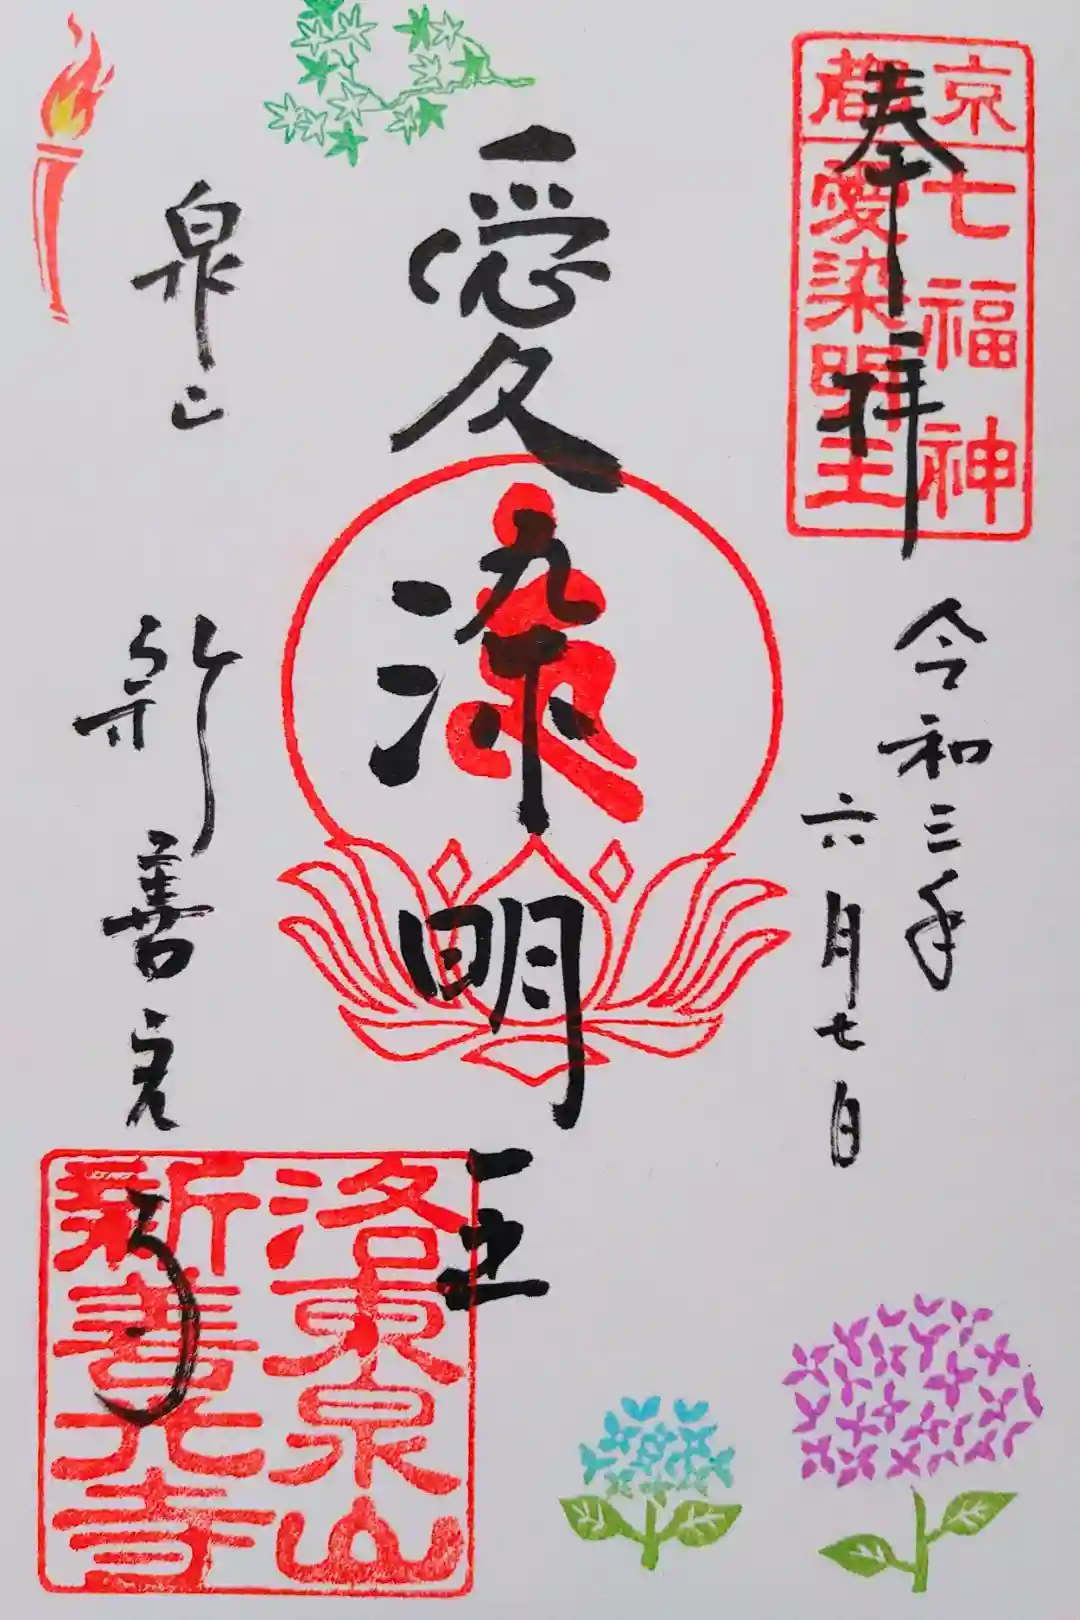 京都
七福神
愛染明王
奉拝
令和三年
六月七日
愛染明王
泉山
新善光寺
洛東泉山
新善光寺